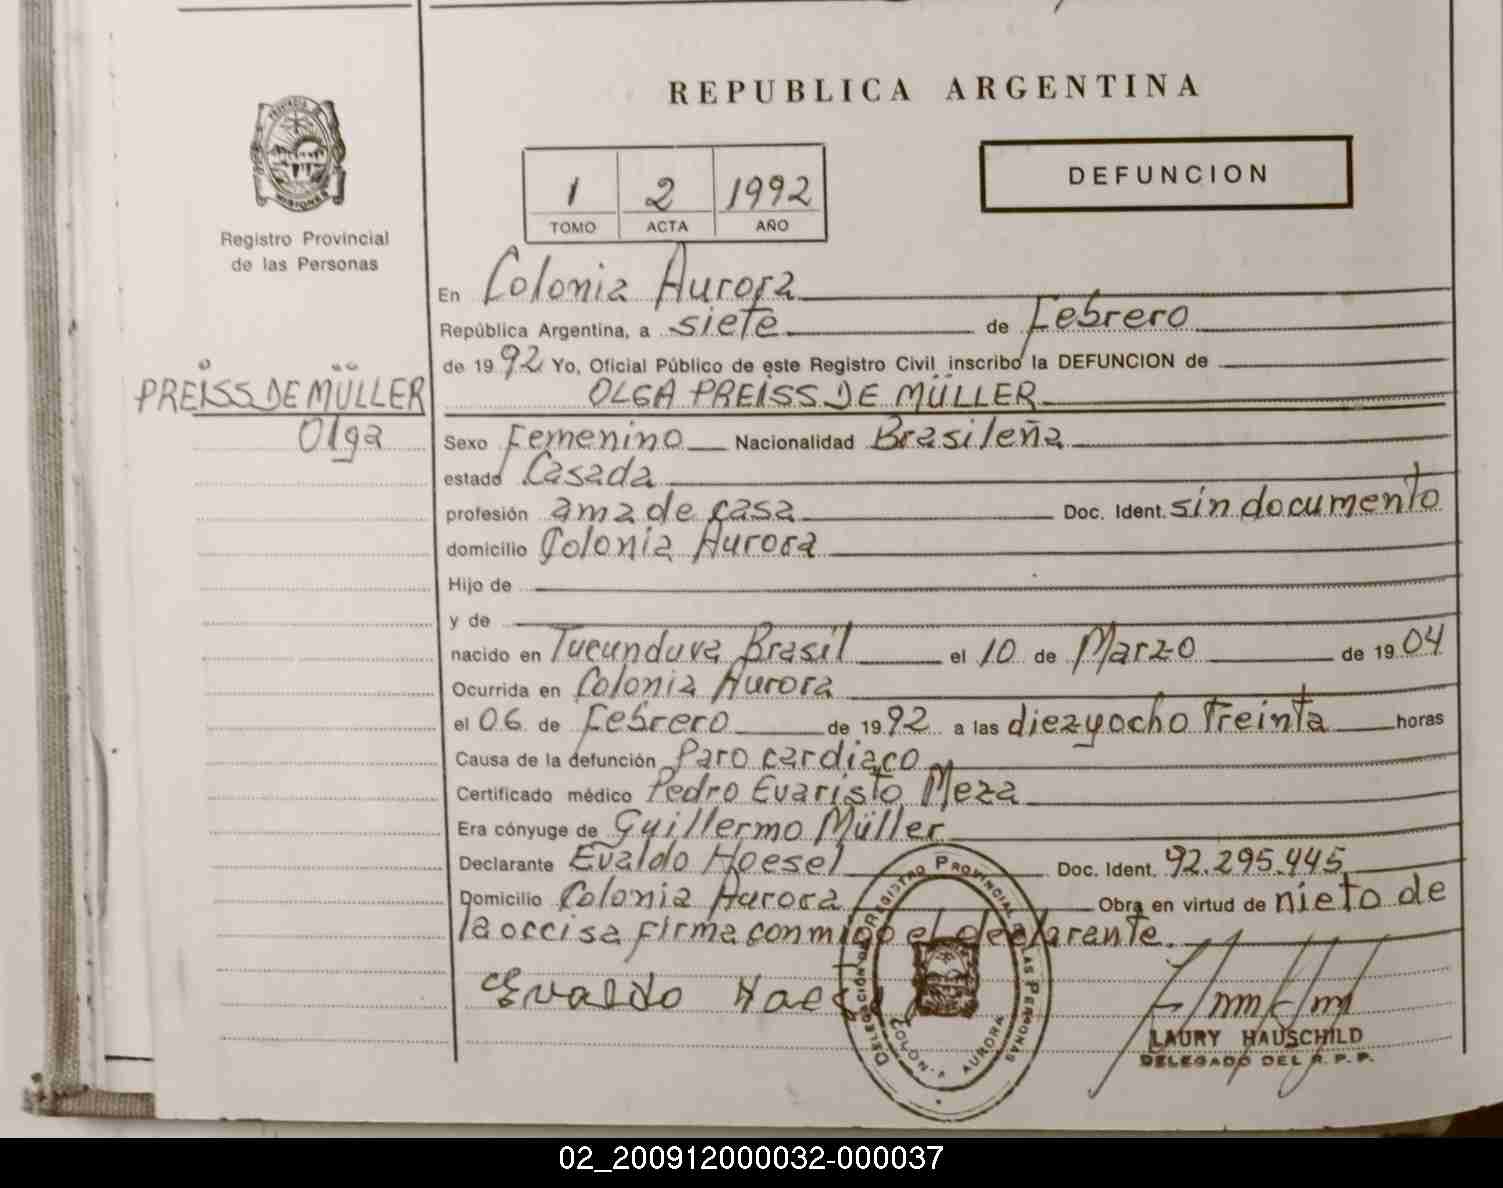 REPUBLICA ARGENTINA
1 2 1992
TOMO ACTA AÑO
DEFUNCION
MISIONES
Registro Provincial
de las Personas
En Colonia Aurora
República Argentina, a siete de Febrero
de 1992 Yo, Oficial Público de este Registro Civil inscribo la DEFUNCION de
PREISS DE MÜLLER
Olga
OLGA PREISS DE MÜLLER
Sexo Femenino Nacionalidad Brasileña
estado Casada
profesión ama de casa Doc. Ident. sin documento
domicilio Colonia Aurora
Hijo de
y de
nacido en Tucunduva Brasil el 10 de Marzo de 1904
Ocurrida en Colonia Aurora
el 06 de Febrero de 1992 a las diezyocho treinta horas
Causa de la defunción Paro cardiaco
Certificado médico Pedro Evaristo Meza
Era cónyuge de Guillermo Müller
Declarante Evaldo Hoesel Doc. Ident. 92.295.445
Domicilio Colonia Aurora Obra en virtud de nieto de
la occisa firma conmigo el declarante.
Evaldo
DELEGACIÓN DEL REGISTRO PROVINCIAL DE LAS PERSONAS
COLONIA AURORA
LAURY HAUSCHILD
DELEGADO DEL R. P. P.
02_200912000032-000037